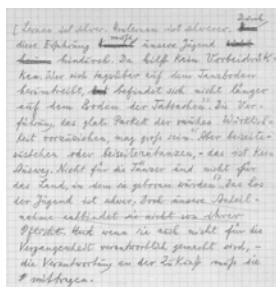 Durch
( Lernen ist schwer. Umlernen ist schwerer.
muß
diese Erfahrung unsere Jugend
hindurch. Da hilft kein Vorbeidrük-
ken. Wer sich tagsüber auf dem Tanzboden
herumtreibt, befindet sich nicht länger
auf dem Boden der Tatsachen. Die Ver-
führung, das glatte Parkett der rauhen Wirklich-
keit vorzuziehen, mag groß sein. Aber beiseite-
stehen oder beiseitetanzen, - das ist kein
Ausweg. Nicht für die Tänzer und nicht für
das Land, in dem sie geboren wurden. Das Los
der Jugend ist schwer. Doch unsere Anteil-
nahme entbindet sie nicht von ihrer
Pflicht. Und wenn sie auch nicht für die
Vergangenheit verantwortlich gemacht wird, -
die Verantwortung an der Zukunft muß sie
mittragen.